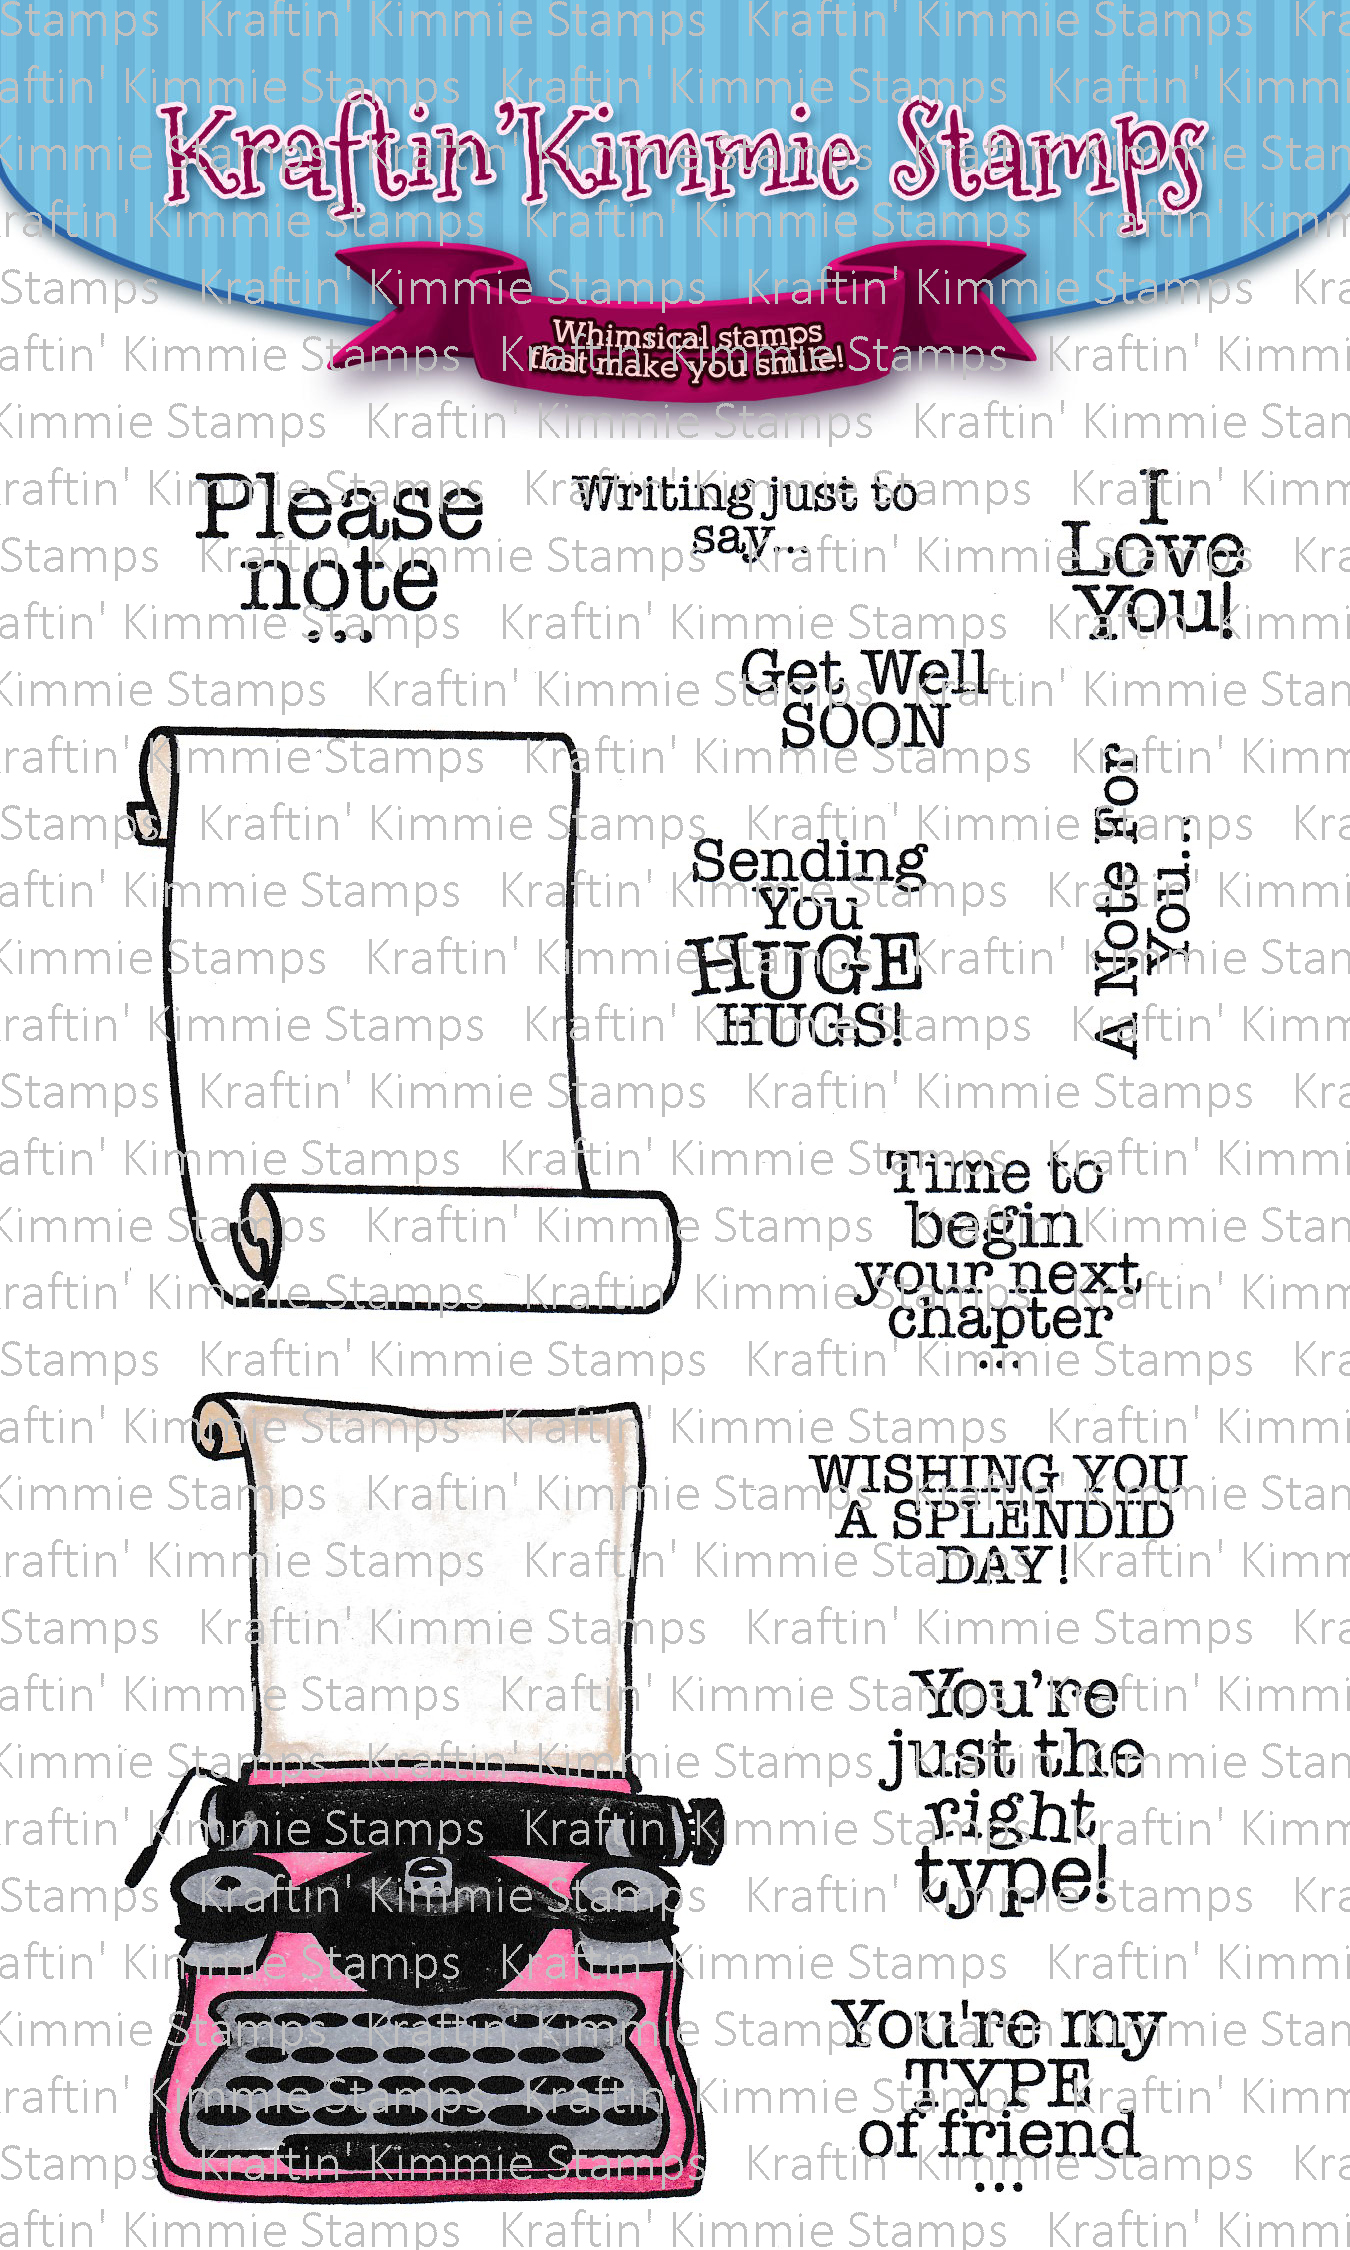 Kraftin' Kimmie Stamps
Whimsical stamps
that make you smile!
Please
note
...
Writing just to
say...
I
Love
You!
Get Well
SOON
Sending
You
HUGE
HUGS!
A Note For
You...
Time to
begin
your next
chapter
...
WISHING YOU
A SPLENDID
DAY!
You're
just the
right
type!
You're my
TYPE
of friend
...
Kraftin' Kimmie Stamps